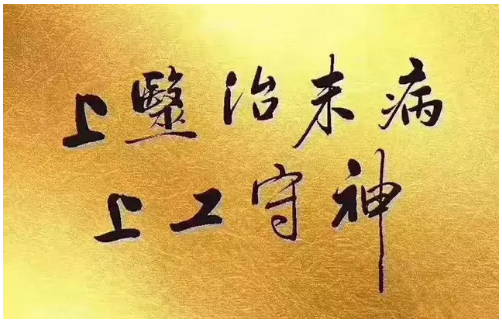 上毉治未病
上工守神